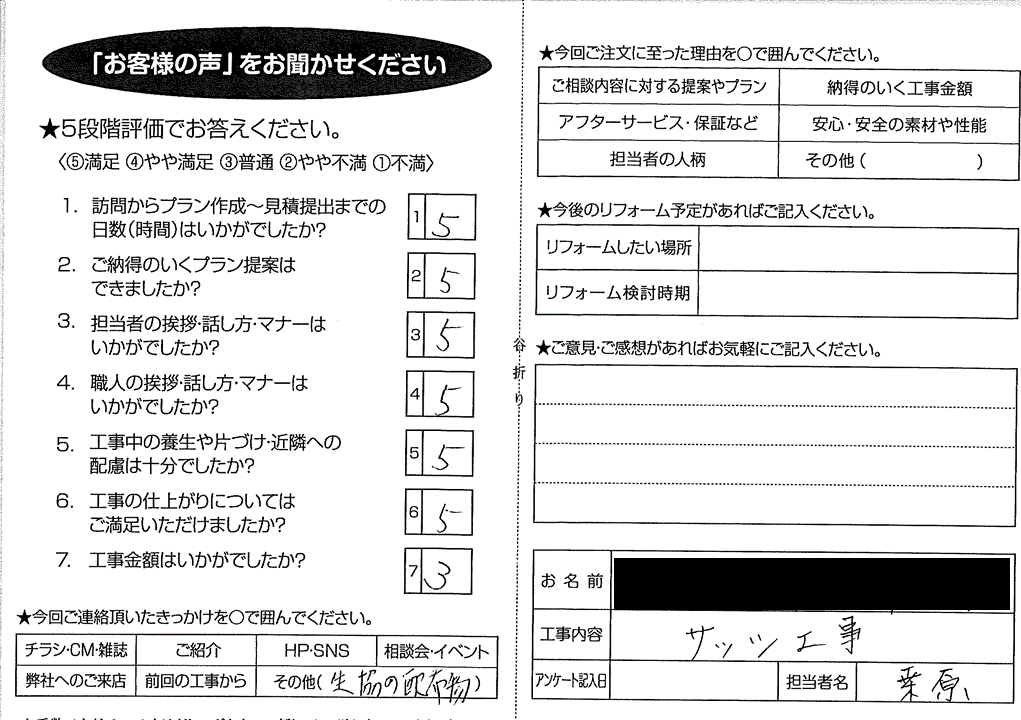 「お客様の声」をお聞かせください
★5段階評価でお答えください。
〈⑤満足 ④やや満足 ③普通 ②やや不満 ①不満〉
1. 訪問からプラン作成～見積提出までの
日数(時間)はいかがでしたか?
1 5
2. ご納得のいくプラン提案は
できましたか?
2 5
3. 担当者の挨拶・話し方・マナーは
いかがでしたか?
3 5
4. 職人の挨拶・話し方・マナーは
いかがでしたか?
4 5
5. 工事中の養生や片づけ・近隣への
配慮は十分でしたか?
5 5
6. 工事の仕上がりについては
ご満足いただけましたか?
6 5
7. 工事金額はいかがでしたか?
7 3
★今回ご連絡頂いたきっかけを○で囲んでください。
チラシ・CM・雑誌 ご紹介 HP・SNS 相談会・イベント
弊社へのご来店 前回の工事から その他(生協の配布物)
谷折り
★今回ご注文に至った理由を○で囲んでください。
ご相談内容に対する提案やプラン 納得のいく工事金額
アフターサービス・保証など 安心・安全の素材や性能
担当者の人柄 その他( )
★今後のリフォーム予定があればご記入ください。
リフォームしたい場所
リフォーム検討時期
★ご意見・ご感想があればお気軽にご記入ください。
お名前
工事内容 サッツ工事
アンケート記入日 担当者名 桑原